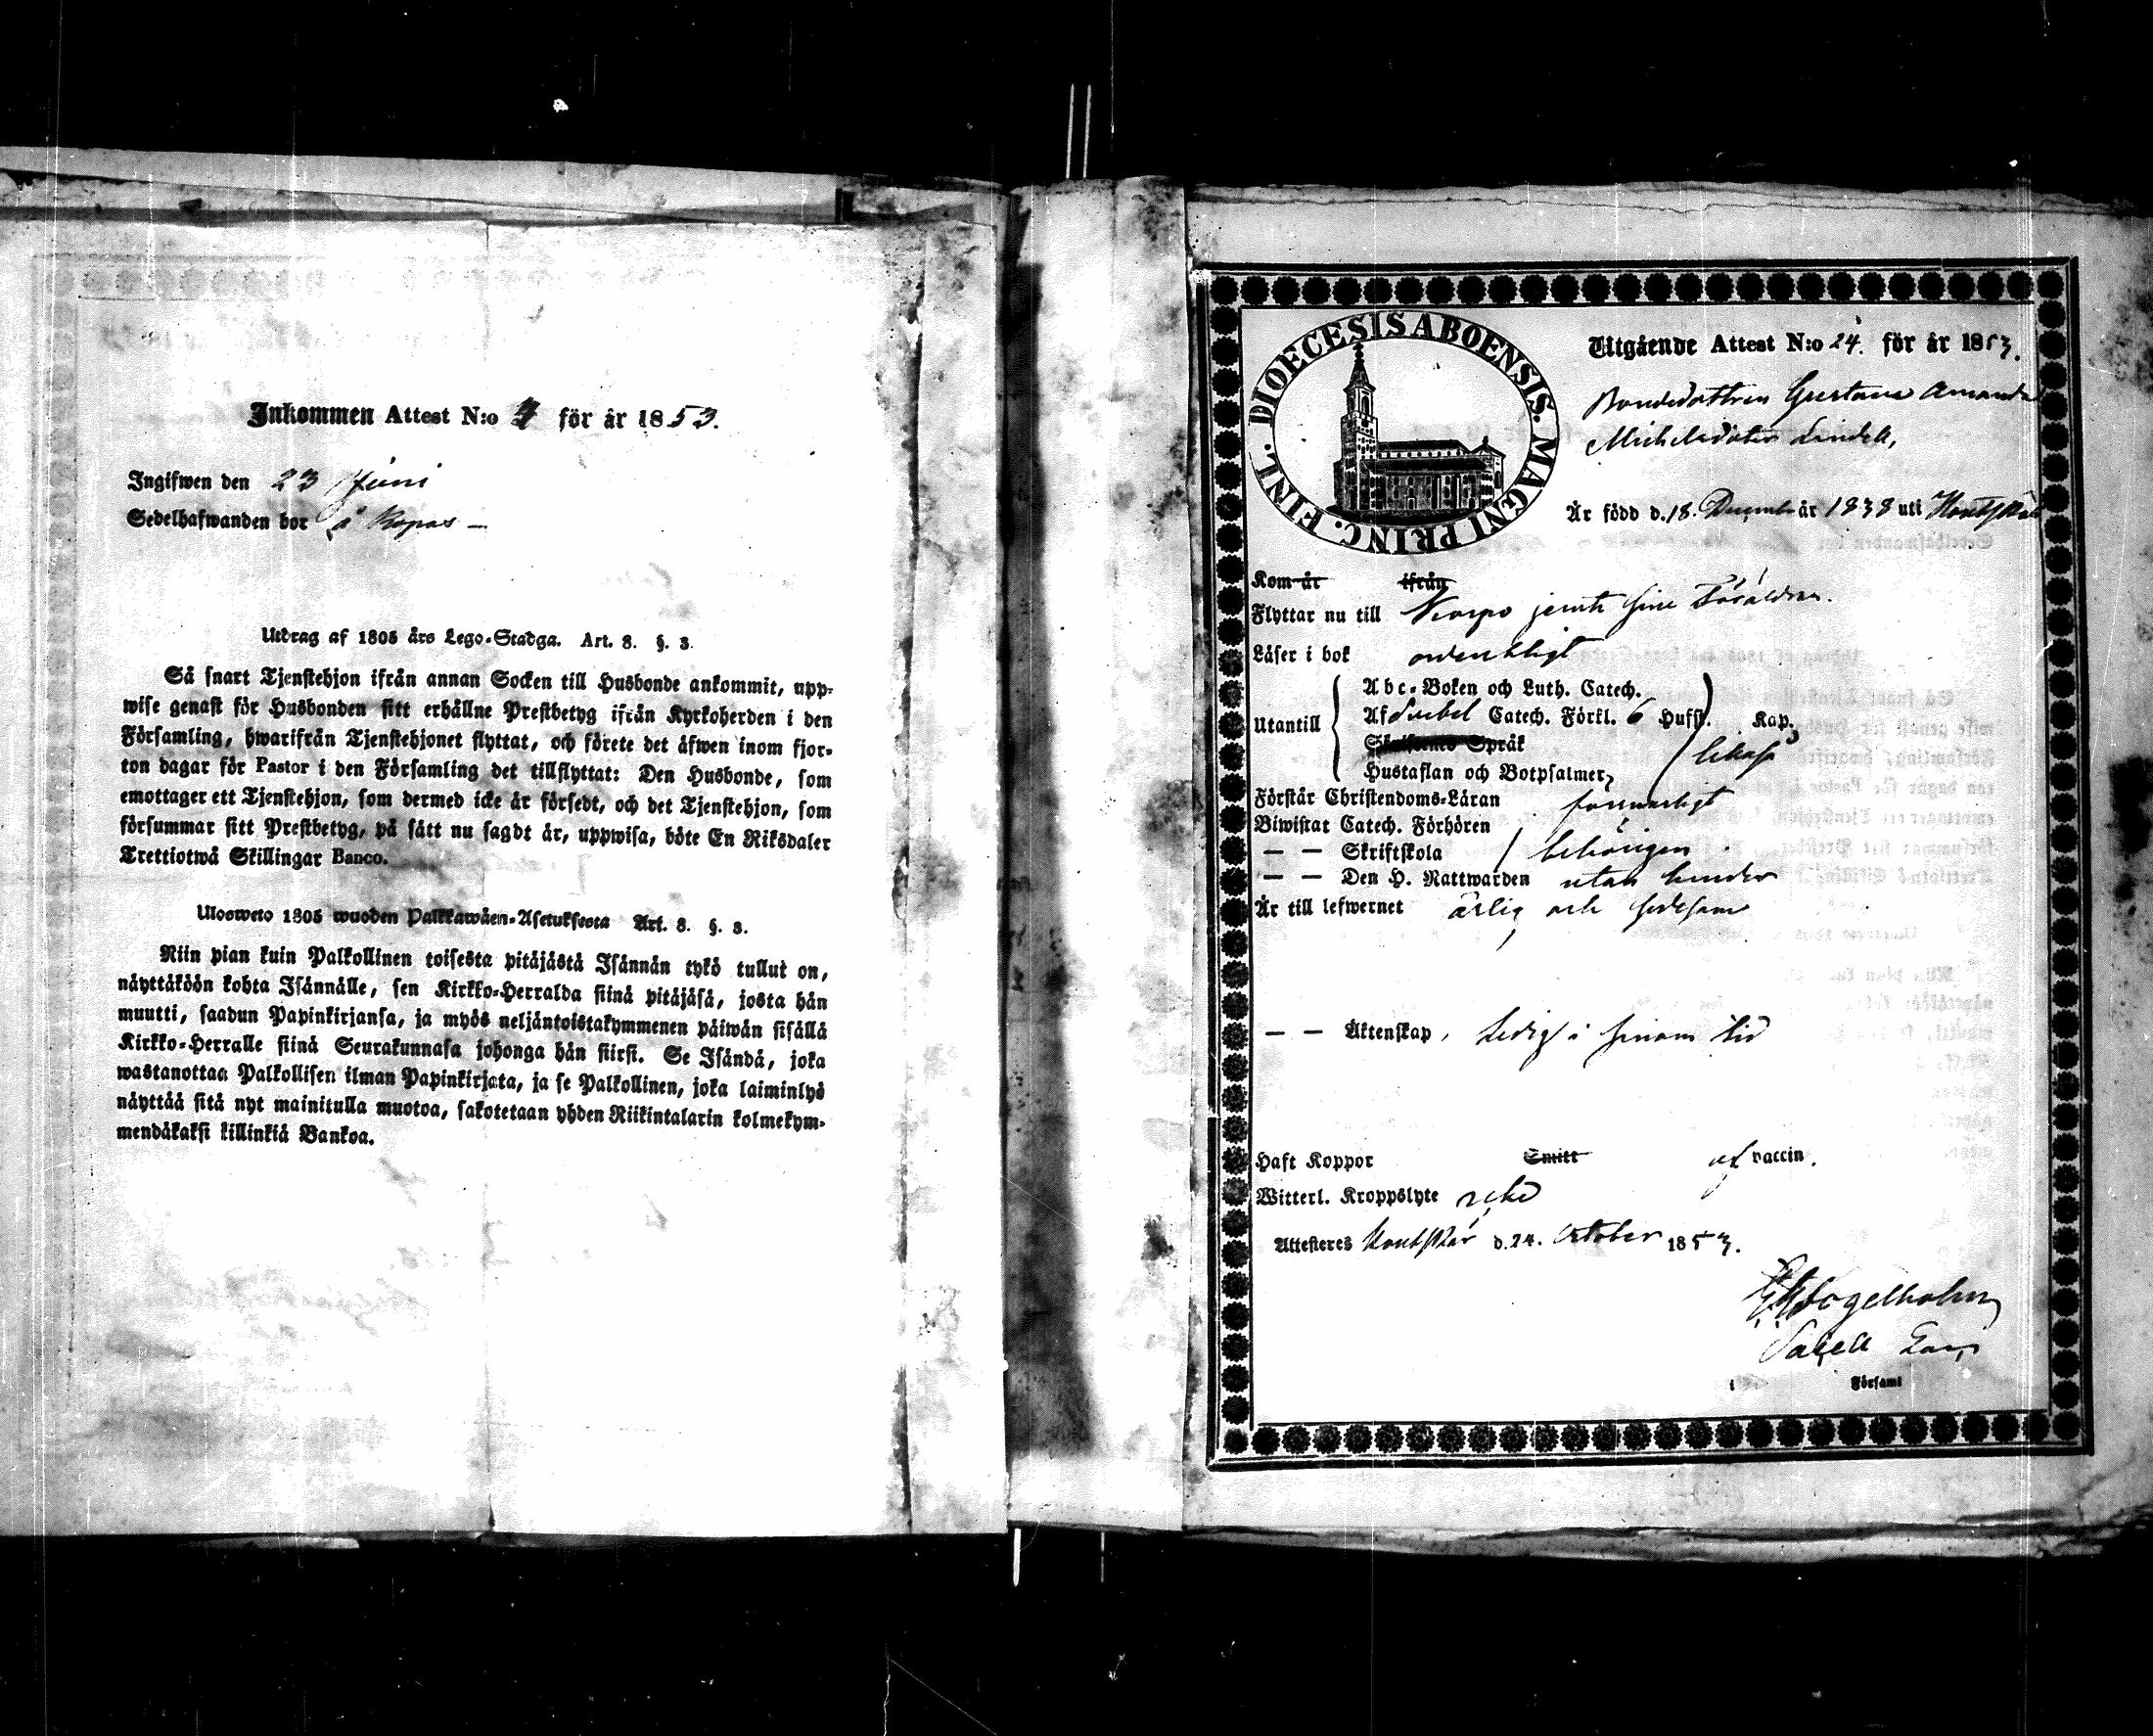 Inkommen Attest N:o 4 för år 1853.
Ingifwen den 23 Juni
Sedelhafwanden bor å Kopas –
Utdrag af 1805 års Lego-Stadga. Art. 8. §. 3.
Så snart Tjenstehjon ifrån annan Socken till Husbonde ankommit, upp-
wise genast för Husbonden sitt erhållne Prestbetyg ifrån Kyrkoherden i den
Församling, hwarifrån Tjenstehjonet flyttat, och förete det äfwen inom fjor-
ton dagar för Pastor i den Församling det tillflyttat: Den Husbonde, som
emottager ett Tjenstehjon, som dermed icke är försedt, och det Tjenstehjon, som
försummar sitt Prestbetyg, på sätt nu sagdt är, uppwisa, böte En Riksdaler
Trettiotwå Skillingar Banco.
Ulosweto 1805 wuoden Palkkawäen-Asetuksesta Art. 8. §. 3.
Niin pian kuin Palkollinen toisesta pitäjästä Isännän tykö tullut on,
näyttäköön kohta Isännälle, sen Kirkko-Herralda siinä pitäjäsä, josta hän
muutti, saadun Papinkirjansa, ja myös neljäntoistakymmenen päiwän sisällä
Kirkko-Herralle siinä Seurakunnasa johonga hän siirsi. Se Isändä, joka
wastanottaa Palkollisen ilman Papinkirjata, ja se Palkollinen, joka laiminlyö
näyttää sitä nyt mainitulla muotoa, sakotetaan yhden Riikintalarin kolmekym-
mendäkaksi killinkiä Bankoa.
DIOECESIS ABOENSIS. MAGNI PRINC. FINL.
Utgående Attest N:o 24. för år 1853.
Bondedottren Gustava Amanda
Michelsdoter Lindell,
Är född d. 18. December år 1838 uti Houtskär
Kom år ifrån
Flyttar nu till Korpo jemte sine Föräldrar.
Läser i bok ordentligt
Abc-Boken och Luth. Catech.
Utantill Af Svebel Catech. Förkl. 6 Hufst. Kap.
Skriftenes Språk likaså
Hustaflan och Botpsalmer,
Förstår Christendoms-Läran försvarligt
Biwistat Catech. Förhören
— — Skriftskola behörigen
— — Den H. Nattwarden utan hinder
Är till lefwernet ärlig och sedesam
— — Äktenskap, ledig i sinom tid
Haft Koppor Smitt af vaccin.
Witterl. Kroppslyte icke
Attesteres Houtskär d. 24. October 1853.
Fogelholm
i Församl